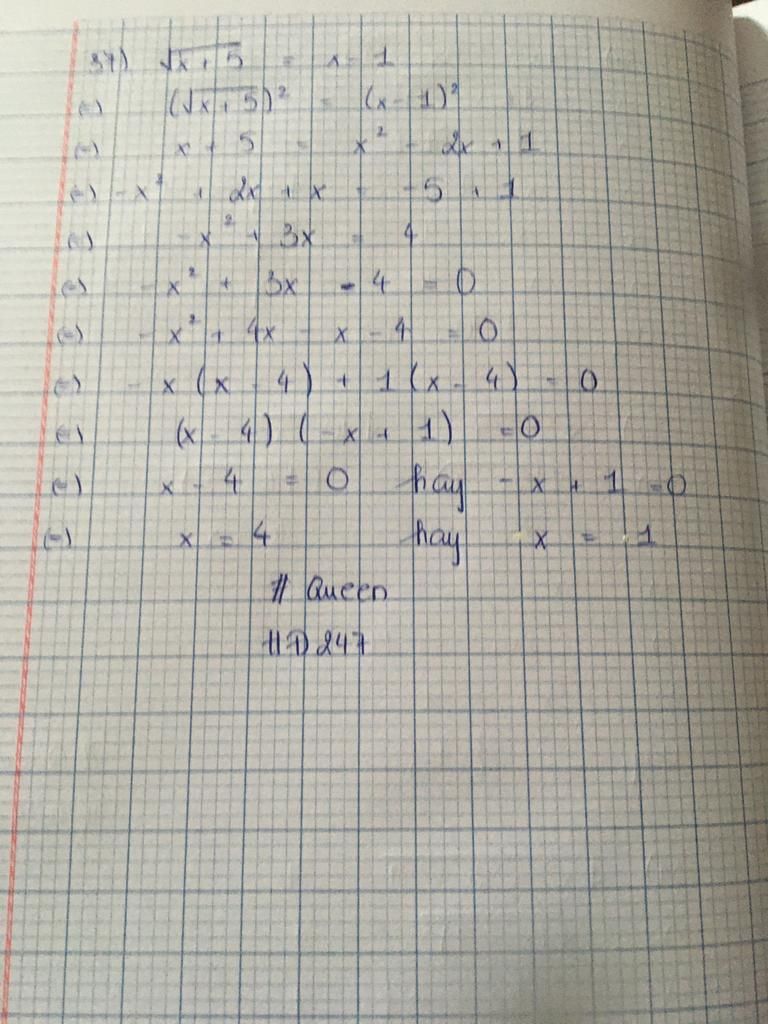 37) √x+5 = x-1
(=) (√x+5)² = (x-1)²
(=) x + 5 = x² - 2x + 1
(=) -x² + 2x + x = -5 + 1
(=) -x² + 3x = 4
(=) -x² + 3x - 4 = 0
(=) -x² + 4x - x - 4 = 0
(=) -x(x-4) + 1(x-4) = 0
(=) (x-4)(-x+1) = 0
(=) x-4 = 0 hay -x+1 = 0
(=) x = 4 hay x = 1
# Queen
HD247